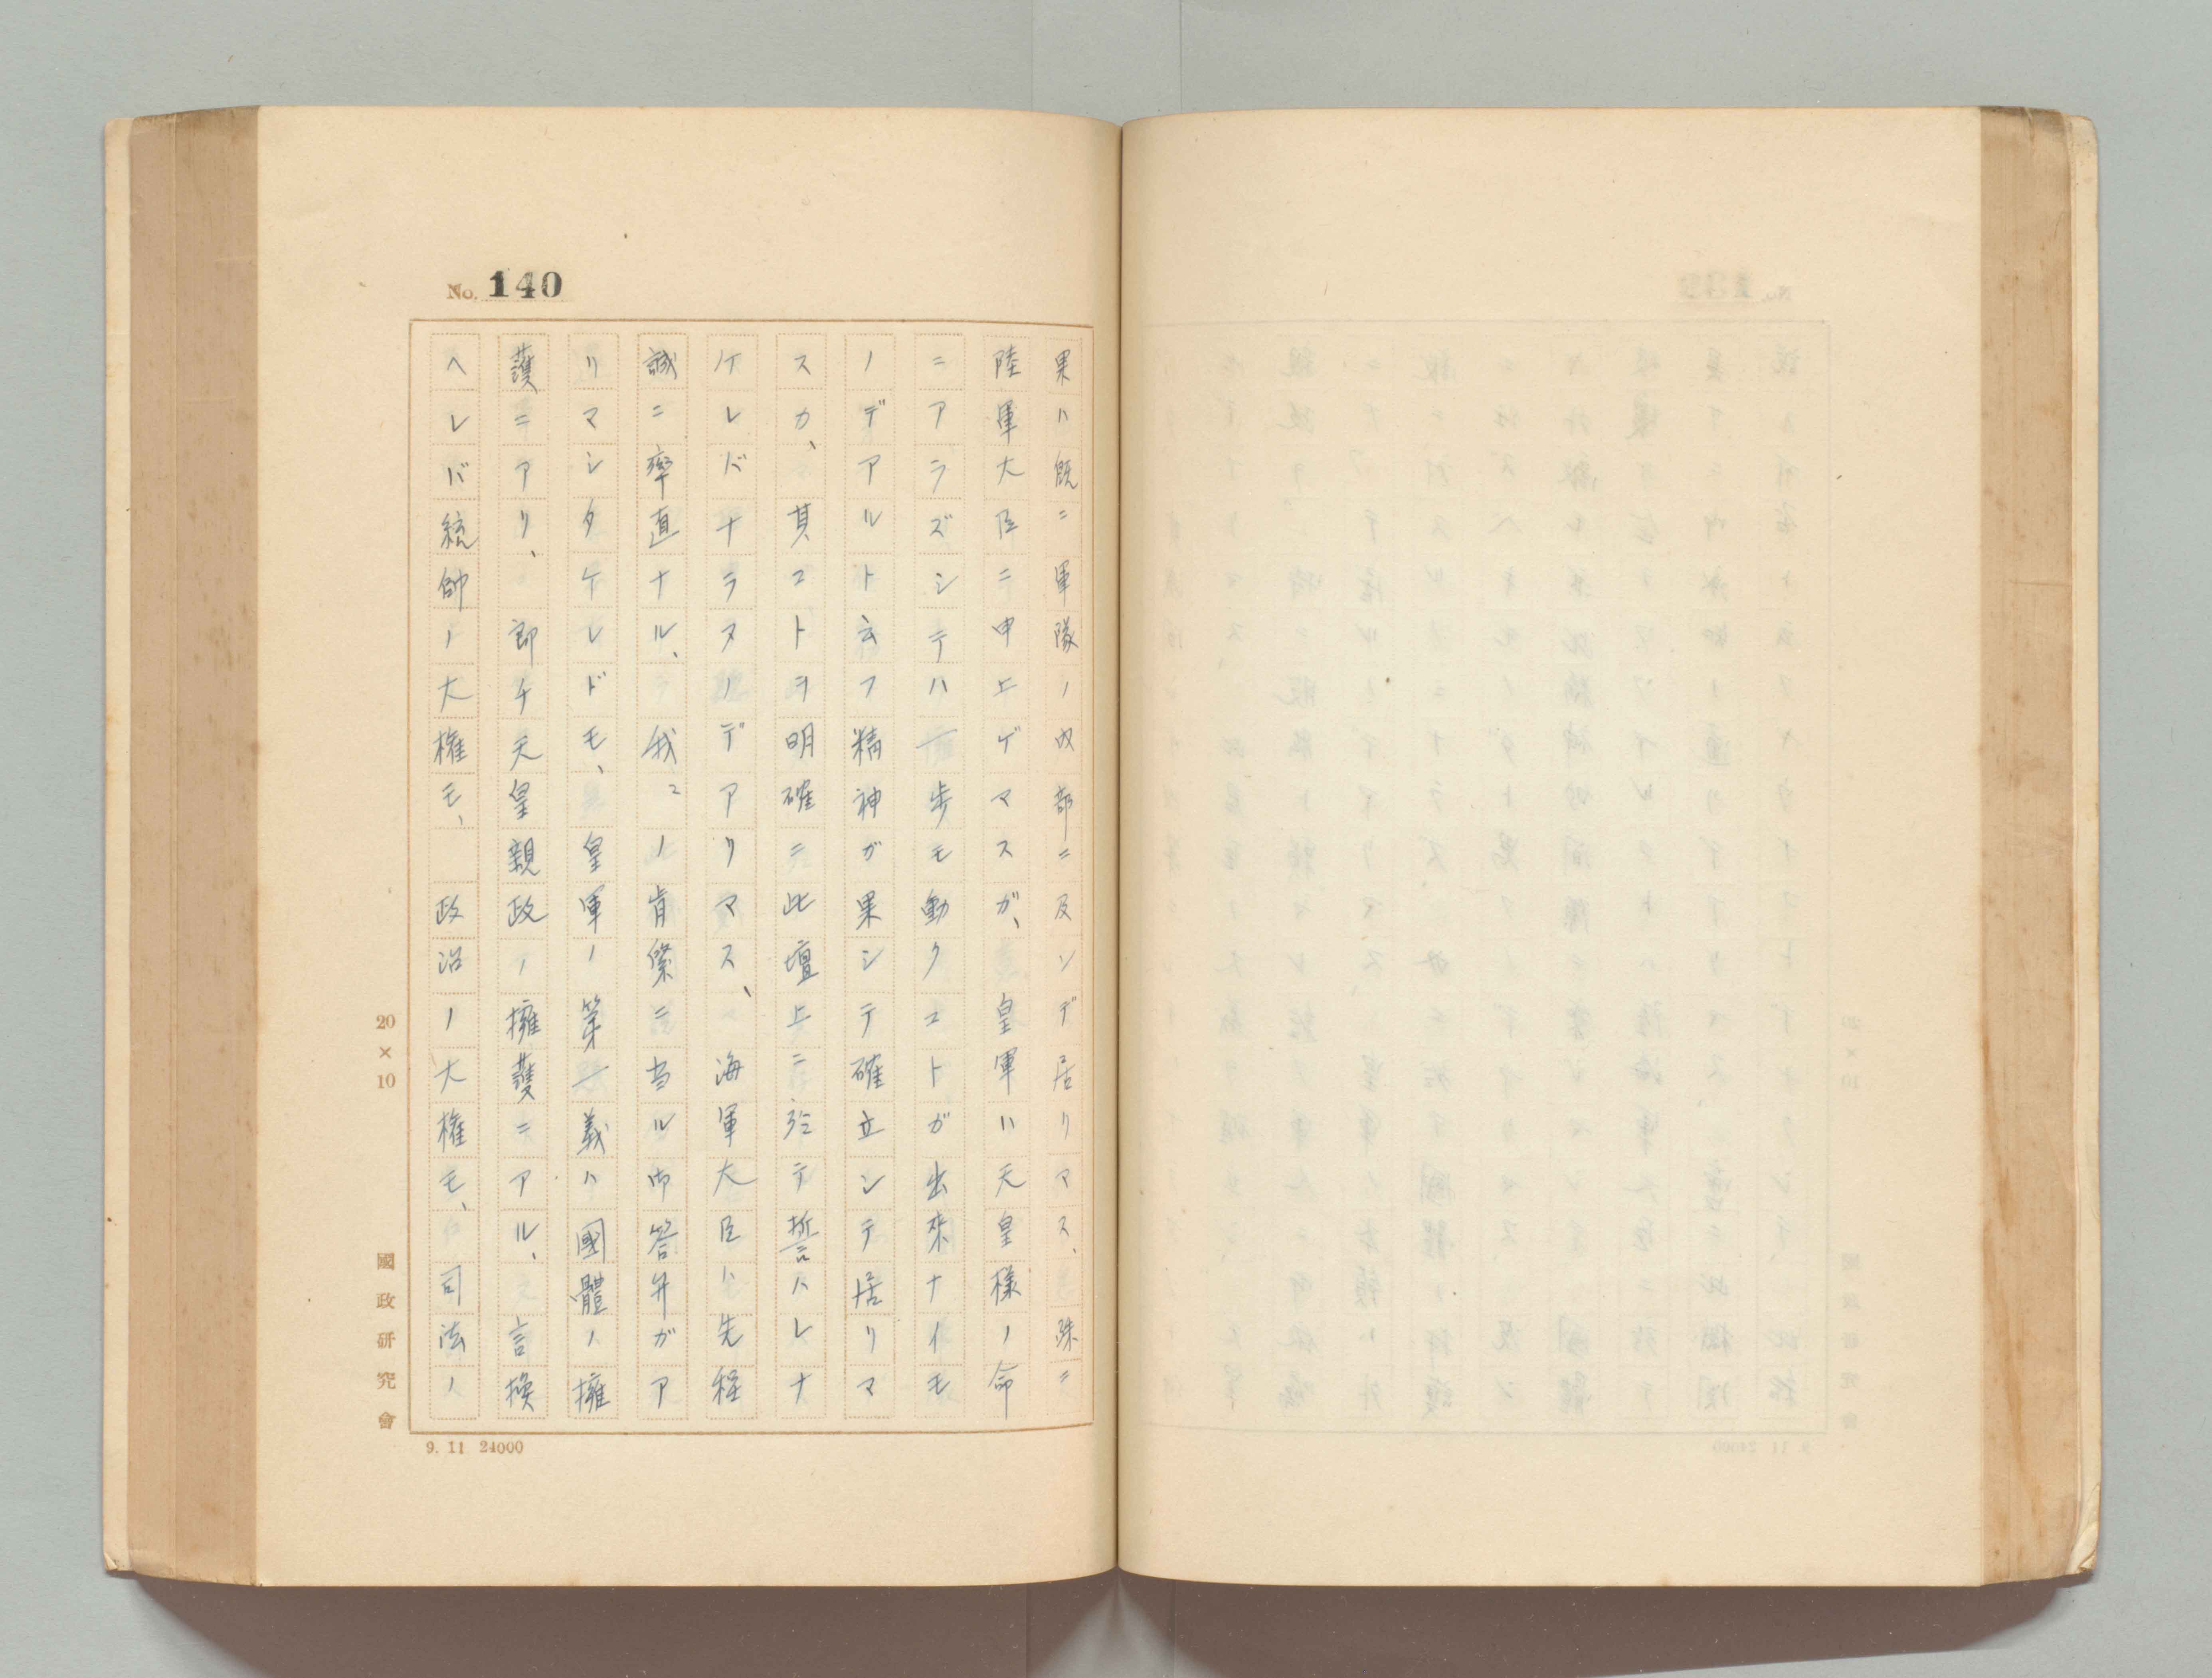 No. 140
果ハ既ニ軍隊ノ内部ニ及ンデ居リマス、殊ニ
陸軍大臣ニ申上ゲマスガ、皇軍ハ天皇様ノ命
ニアラズシテハ一歩モ動クコトガ出来ナイモ
ノデアルト云フ精神ガ果シテ確立シテ居リマ
スカ、其コトヲ明確ニ此壇上ニ於テ誓ハレナ
ケレバナラヌノデアリマス、海軍大臣ハ先程
誠ニ率直ナル、我々ノ肯綮ニ当ル御答弁ガア
リマシタケレドモ、皇軍ノ第一義ハ國體ノ擁
護ニアリ、即チ天皇親政ノ擁護ニアル、言換
ヘレバ統帥ノ大権モ、政治ノ大権モ、司法ノ
20×10
國政研究會
9. 11 24000